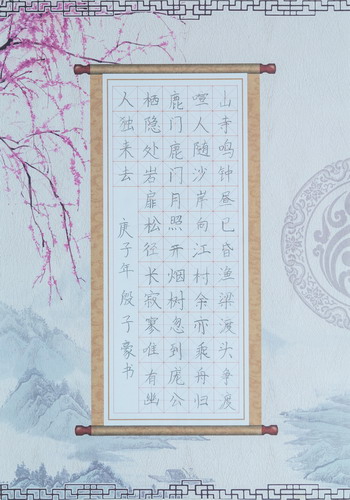 山寺鸣钟昼已昏渔梁渡头争渡
喧人随沙岸向江村余亦乘舟归
鹿门鹿门月照开烟树忽到庞公
栖隐处岩扉松径长寂寥唯有幽
人独来去
庚子年殷子豪书